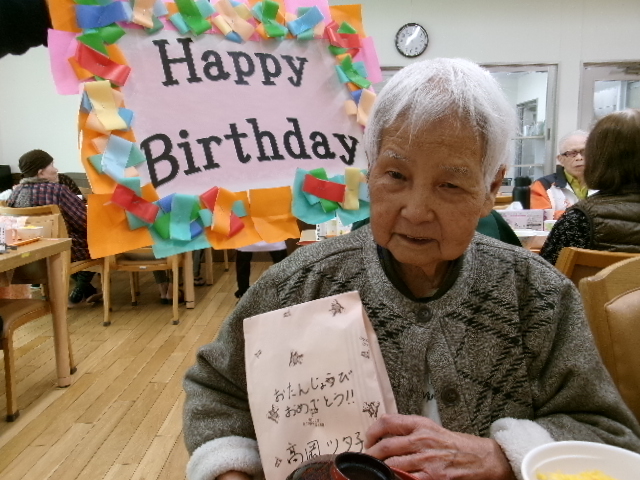 Happy
Birthday
おたんじょうび
おめでとう!!
高岡 ツタ子